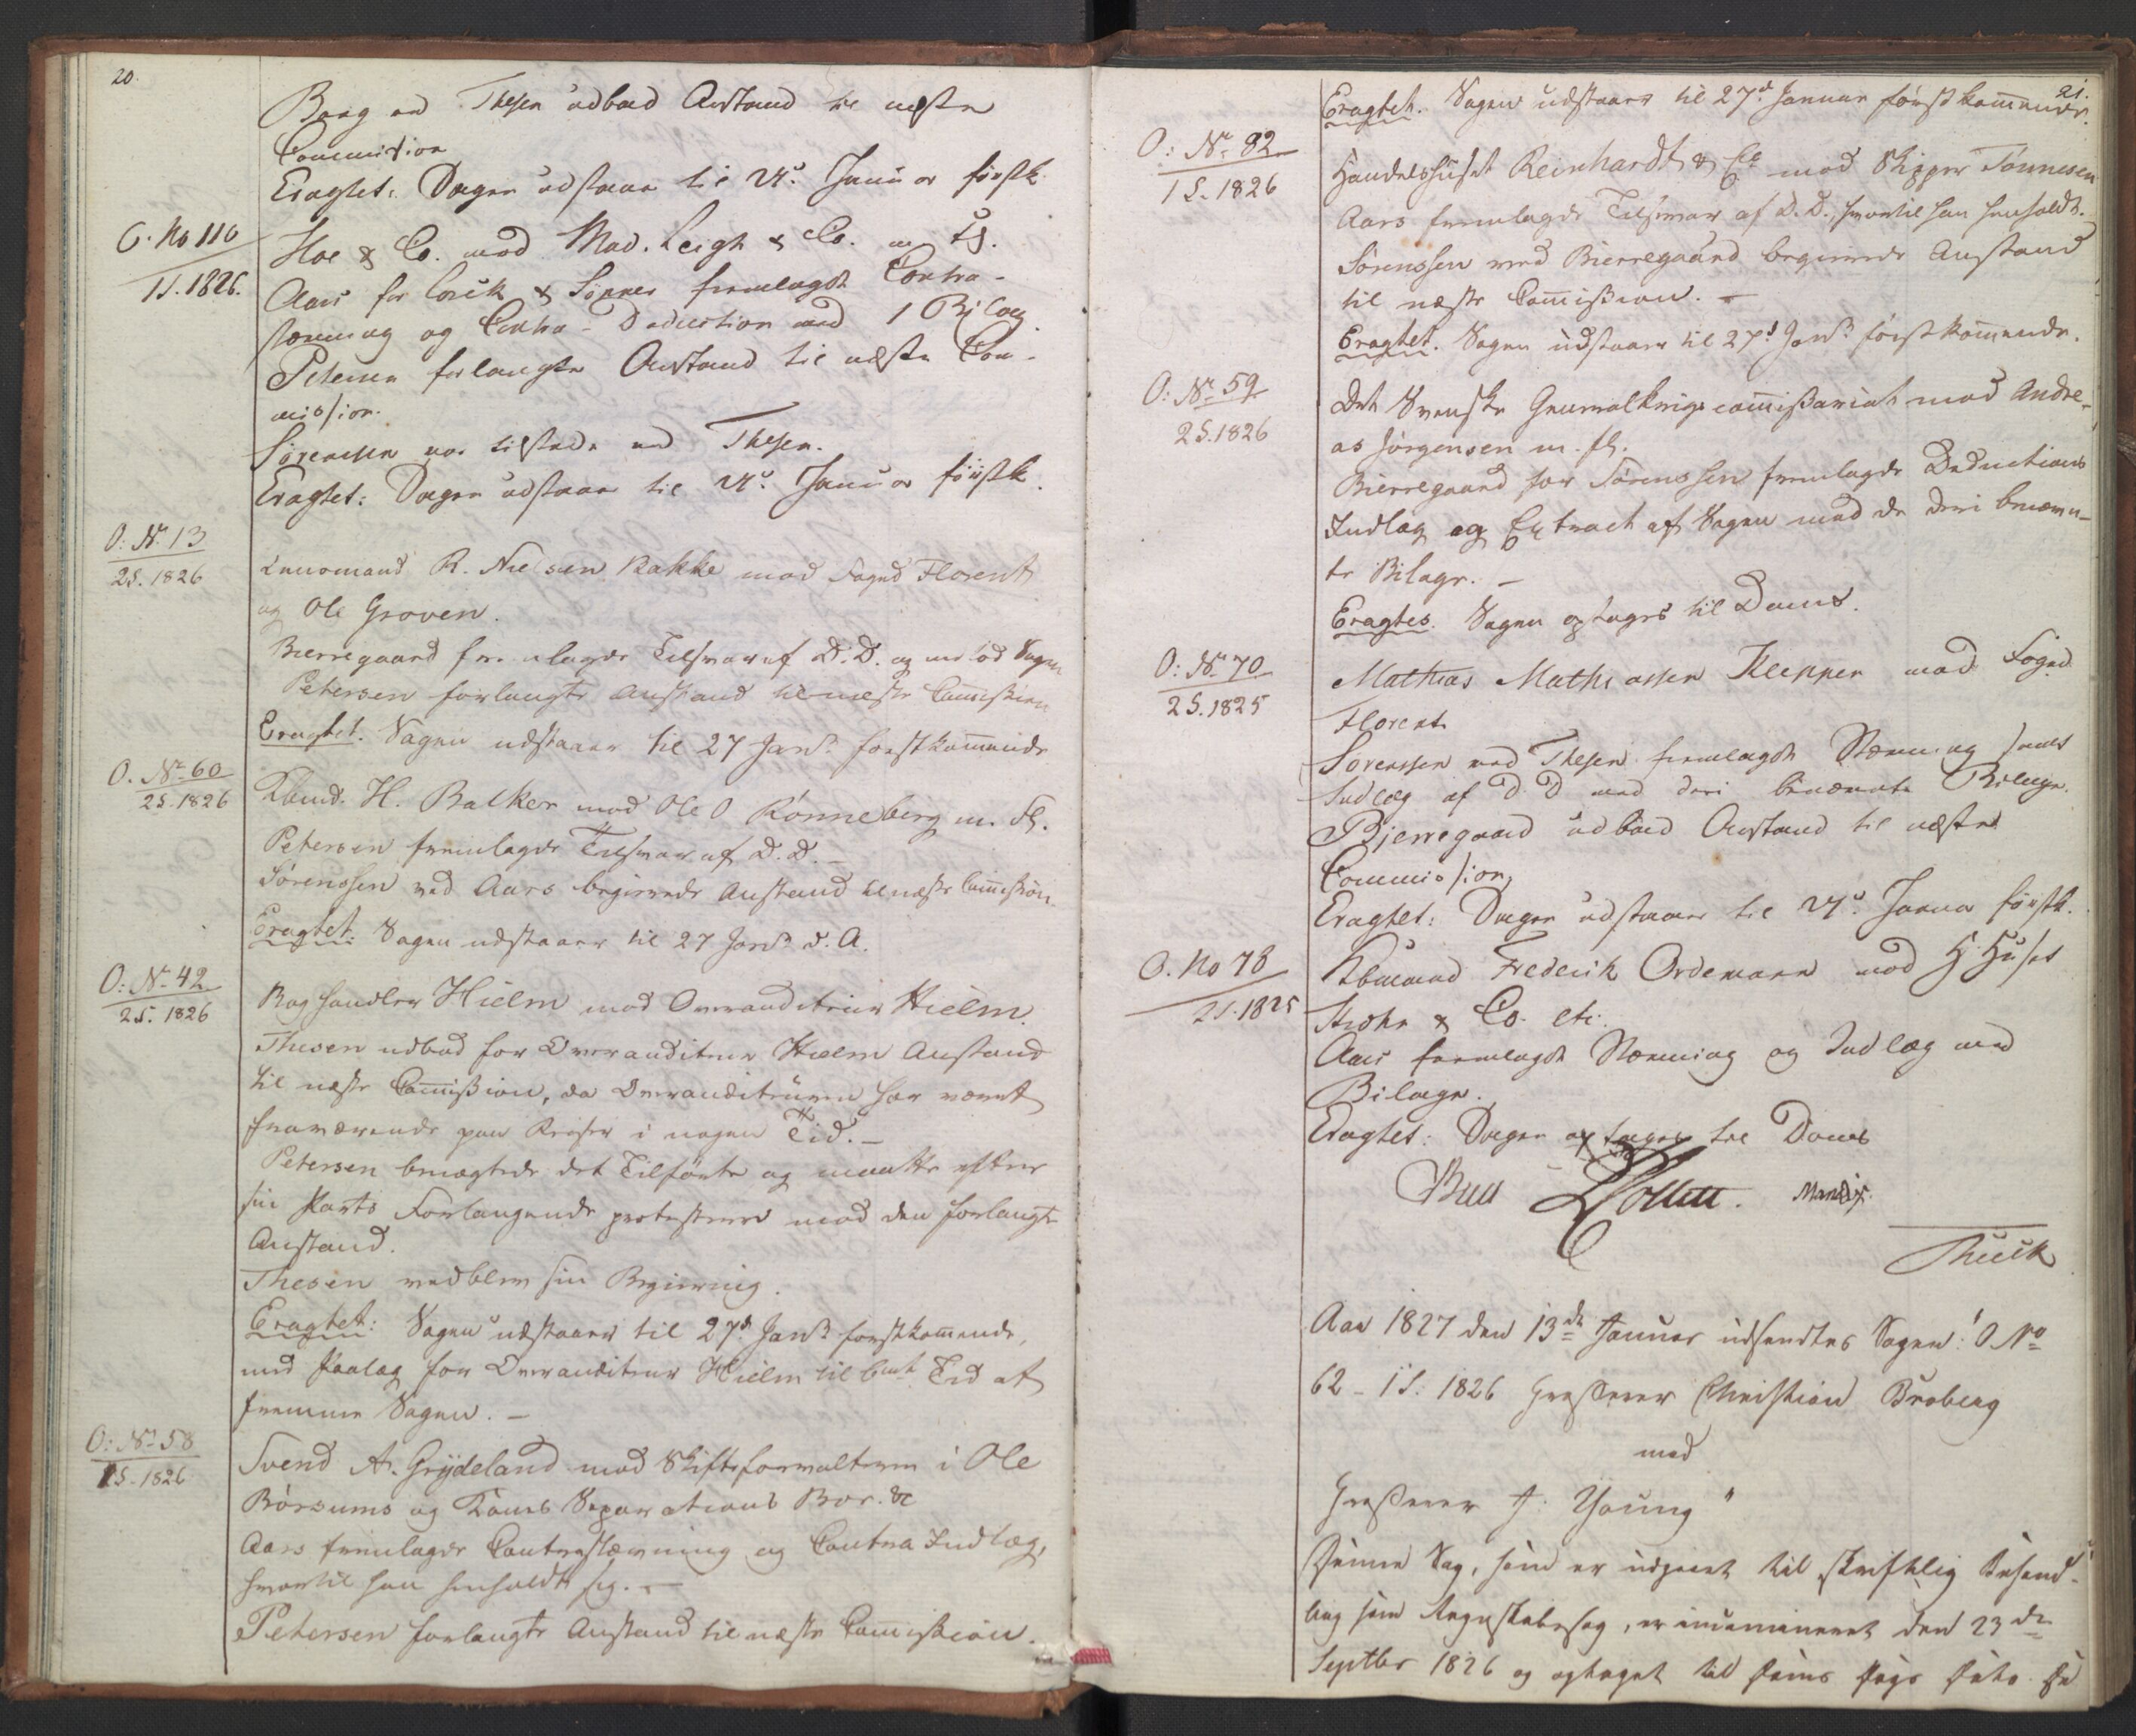 20.
Baag ved Thesen udbad Anstand til næste
Commission
Eragtet: Sagen udstaar til 27d. Januar førstk.
O. No 116
1 S. 1826.
Hoe & Co. mod Mad. Leigh & Co. m fl.
Aars for Lorck & Sönner fremlagde Contra-
stævning og Contra-Deduction med 1 Bilag.
Petersen forlangte Anstand til næste Com-
mission.
Sörensen var tilstede ved Thesen.
Eragtet: Sagen udstaar til 27d. Januar förstk.
O: No. 13
2 S. 1826
Lensmand R. Nielsen Bakke mod Foged Florentz
og Ole Groven.
Bierregaard fremlagde Tilsvar af D. D. og imod Sagen
Petersen forlangte Anstand til næste Commission
Eragtet. Sagen udstaaer til 27 Janr. førstkommende
O. No. 60
2 S. 1826
Kbmd. H. Balker mod Ole O Rönneberg m. fl.
Petersen fremlagde Tilsvar af D. D. –
Sörenssen ved Aars begierede Anstand til næste Commission.
Eragtet: Sagen udstaaer til 27 Janr. d. A.
O: No. 42
2 S. 1826
Boghandler Hielm mod Overauditeur Hielm.
Thesen udbad for Overauditeur Hielm Anstand
til næste Commission, da Overauditeuren har været
fraværende paa Reiser i nogen Tid. –
Petersen benægtede det Tilförte og maatte efter
sin Parts Forlangende protestere mod den forlangte
Anstand.
Thesen vedblev sin Begiering.
Eragtet: Sagen udstaaer til 27d. Janr. førstkommende,
med Paalæg for Overauditeur Hielm til bemt. Tid at
fremme Sagen. –
O: No 58
2 S. 1826
Svend A. Grÿdeland mod Skifteforvalteren i Ole
Börsums og Kones Separations Boe &c
Aars fremlagde Contrastævning og Contra Indlæg,
hvortil han henholdt sig. –
Petersen forlangte Anstand til næste Commission.
21.
Eragtet. Sagen udstaaer til 27d. Januar först kommende.
O: No. 82
1 S. 1826
Handelshuset Reinhardt & Ce mod Skipper Tönnesen
Aars fremlagde Tilsvar af D. D., hvortil han henholdt.
Sörenssen ved Bierregaard begierede Anstand
til næste Commission. –
Eragtet. Sagen udstaaer til 27d. Janr. förstkommende.
O: No. 59
2 S. 1826
Det Svenske Generalkrigscommissariat mod Andre-
as Jörgensen m. fl.
Bierregaard for Sörenssen fremlagde Deductions
Indlæg og Extract af Sagen med de deri benævn-
te Bilage. –
Eragtes. Sagen optages til Doms.
O: No. 70
2 S. 1825
Mathias Mathiassen Klepper mod Foged
Florentz
Sorenssen ved Thesen fremlagde Stævning samt
Indlæg af D. D med deri benævnte Bilage.
Bjerregaard udbad Anstand til næste
Commission,
Eragtet: Sagen udstaaer til 27d. Januar förstk.
O. No 78
2 S. 1825
Kbmand Frederik Ordemann mod H Huset
Strohn & Co. etc.
Aars fremlagde Stævning og Indlæg med
Bilage.
Eragtet: Sagen optages til Doms
Bull Collett. Mandix.
Thuik
Aar 1827 den 13de Januar udsendtes Sagen: O No
62 – 1 S: 1826 Grosserer Christian Broberg
mod
Grosserer J. Young"
Denne Sag, som er udgaaet til skriftlig Behand-
ling som Regnskabssag, er incamineret den 23de
Septbr 1826 og optaget til Doms